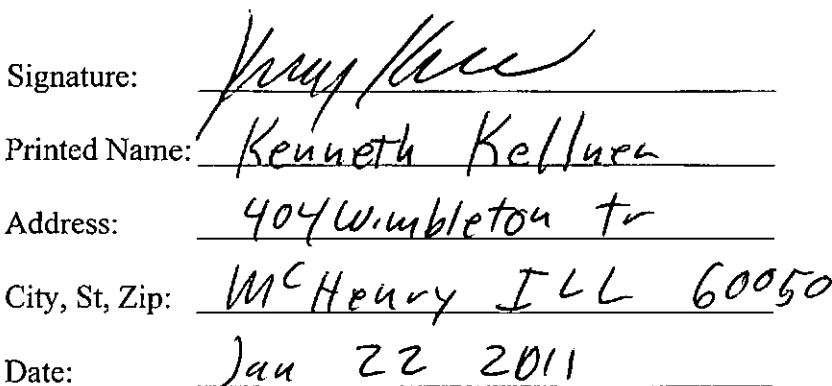 Signature:
Printed Name: Kenneth Kellner
Address: 404 Wimbleton Tr
City, St, Zip: McHenry ILL 60050
Date: Jan 22 2011